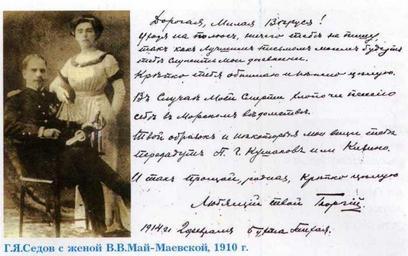 Дорогая, Милая Веруся!
Уходя на полюс, ничего тебе не пишу,
так как лучшим письмом моим будут
тебе служить мои дневники.
Крепко тебя обнимаю и нежно целую.
Въ случае моей смерти хлопочи пенсию
себе в морском ведомстве.
Твой образок и некоторые мои вещи тебе
передадут П. Г. Кушаков или Кизино.
И так прощай, родная, крепко целую
Любящий твой Георгий.
1914 г. 2 февраля бухта Тихая.
Г.Я.Седов с женой В.В.Май-Маевской, 1910 г.